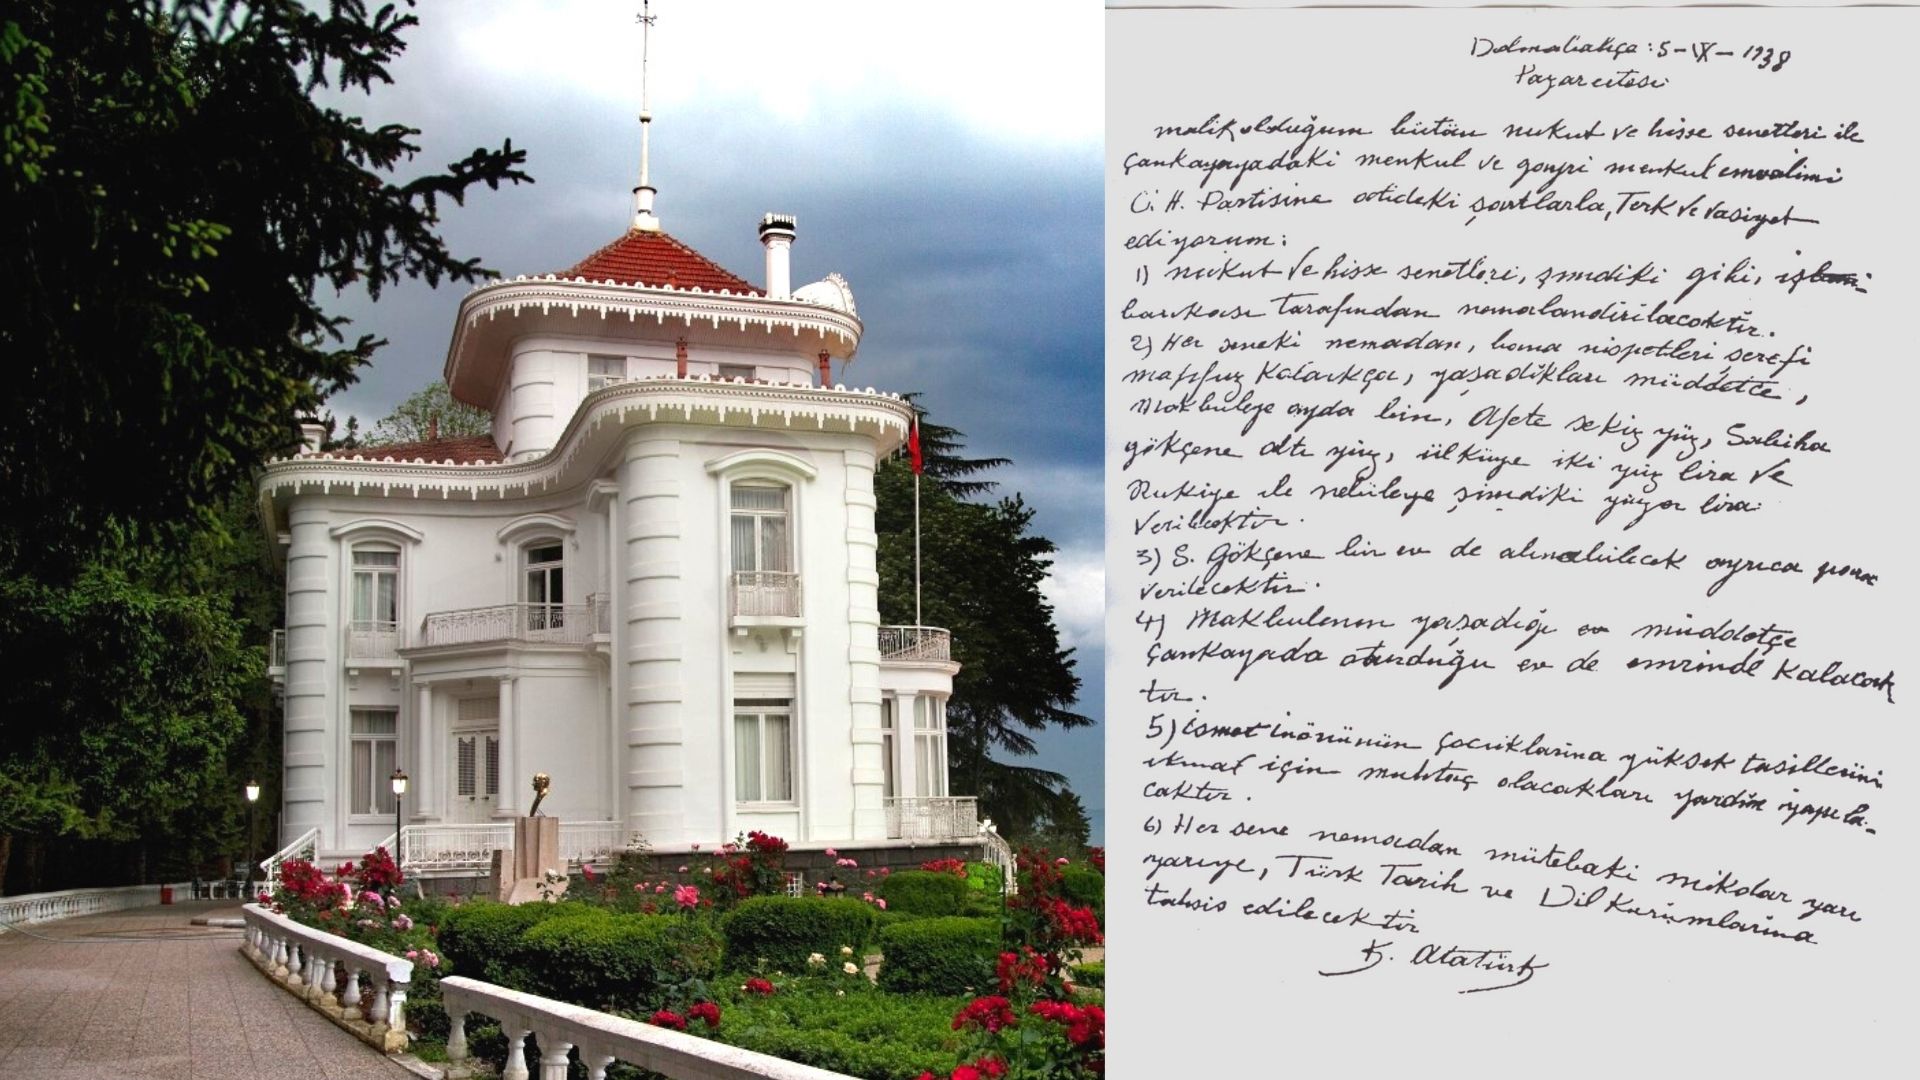 Dolmabahçe: 5-IX-1938
Pazarertesi
malik olduğum bütün nukut ve hisse senetleri ile
Çankayayadaki menkul ve gayri menkul emvalimi
C. H. Partisine atideki şartlarla, Terk ve vasiyet
ediyorum:
1) nukut ve hisse senetleri, şimdiki gibi, iş
bankası tarafından nemalandirilacaktır.
2) Her seneki nemadan, bana nispetleri şerefi
mahfuz kaldıkça, yaşadıkları müddetce,
Makbuleye ayda bin, Afete sekiz yüz, Sabiha
gökçene altı yüz, ülküye iki yüz lira ve
Rukiye ile nebileye şimdiki yüzer lira
verilecektir.
3) S. Gökçene bir ev de alınabilecek ayrıca para
verilecektir.
4) Makbulenin yaşadığı müddetçe
Çankayada oturduğu ev de emrinde kalacak
tır.
5) ismet inönünün çocuklarına yüksek tasillerini
ikmal için muhtaç olacakları yardım yapıla-
caktır.
6) Her sene nemadan mütebaki mikdar yarı
yarıya, Türk Tarih ve Dil Kurumlarina
tahsis edilecektir
K. Atatürk